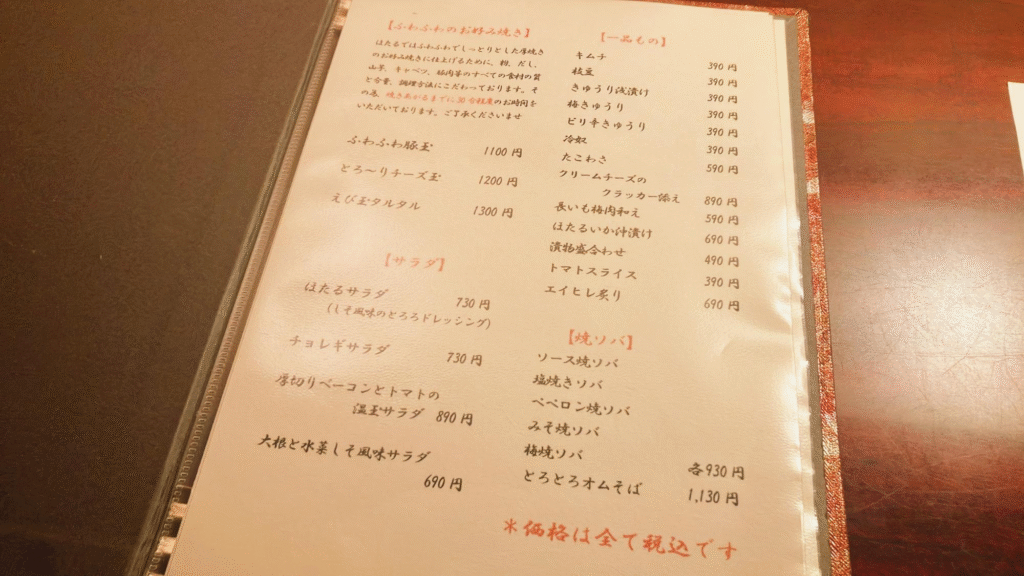 【ふわふわのお好み焼き】
ほたるではふわふわでしっとりとした厚焼き
のお好み焼きに仕上げるために、粉、だし、
山芋、キャベツ、豚肉等のすべての食材の質
と分量、調理方法にこだわっております。そ
の為、焼きあがるまでに30分程度のお時間を
いただいております。ご了承くださいませ
ふわふわ豚玉 1100円
とろ～りチーズ玉 1200円
えび玉タルタル 1300円
【サラダ】
ほたるサラダ 730円
(しそ風味のとろろドレッシング)
チョレギサラダ 730円
厚切りベーコンとトマトの
温玉サラダ 890円
大根と水菜しそ風味サラダ
690円
【一品もの】
キムチ 390円
枝豆 390円
きゅうり浅漬け 390円
梅きゅうり 390円
ピリ辛きゅうり 390円
冷奴 390円
たこわさ 590円
クリームチーズの
クラッカー添え 890円
長いも梅肉和え 590円
ほたるいか沖漬け 690円
漬物盛合わせ 490円
トマトスライス 390円
エイヒレ炙り 690円
【焼ソバ】
ソース焼ソバ
塩焼きソバ
ペペロン焼ソバ
みそ焼ソバ
梅焼ソバ 各930円
とろとろオムそば 1,130円
＊価格は全て税込です